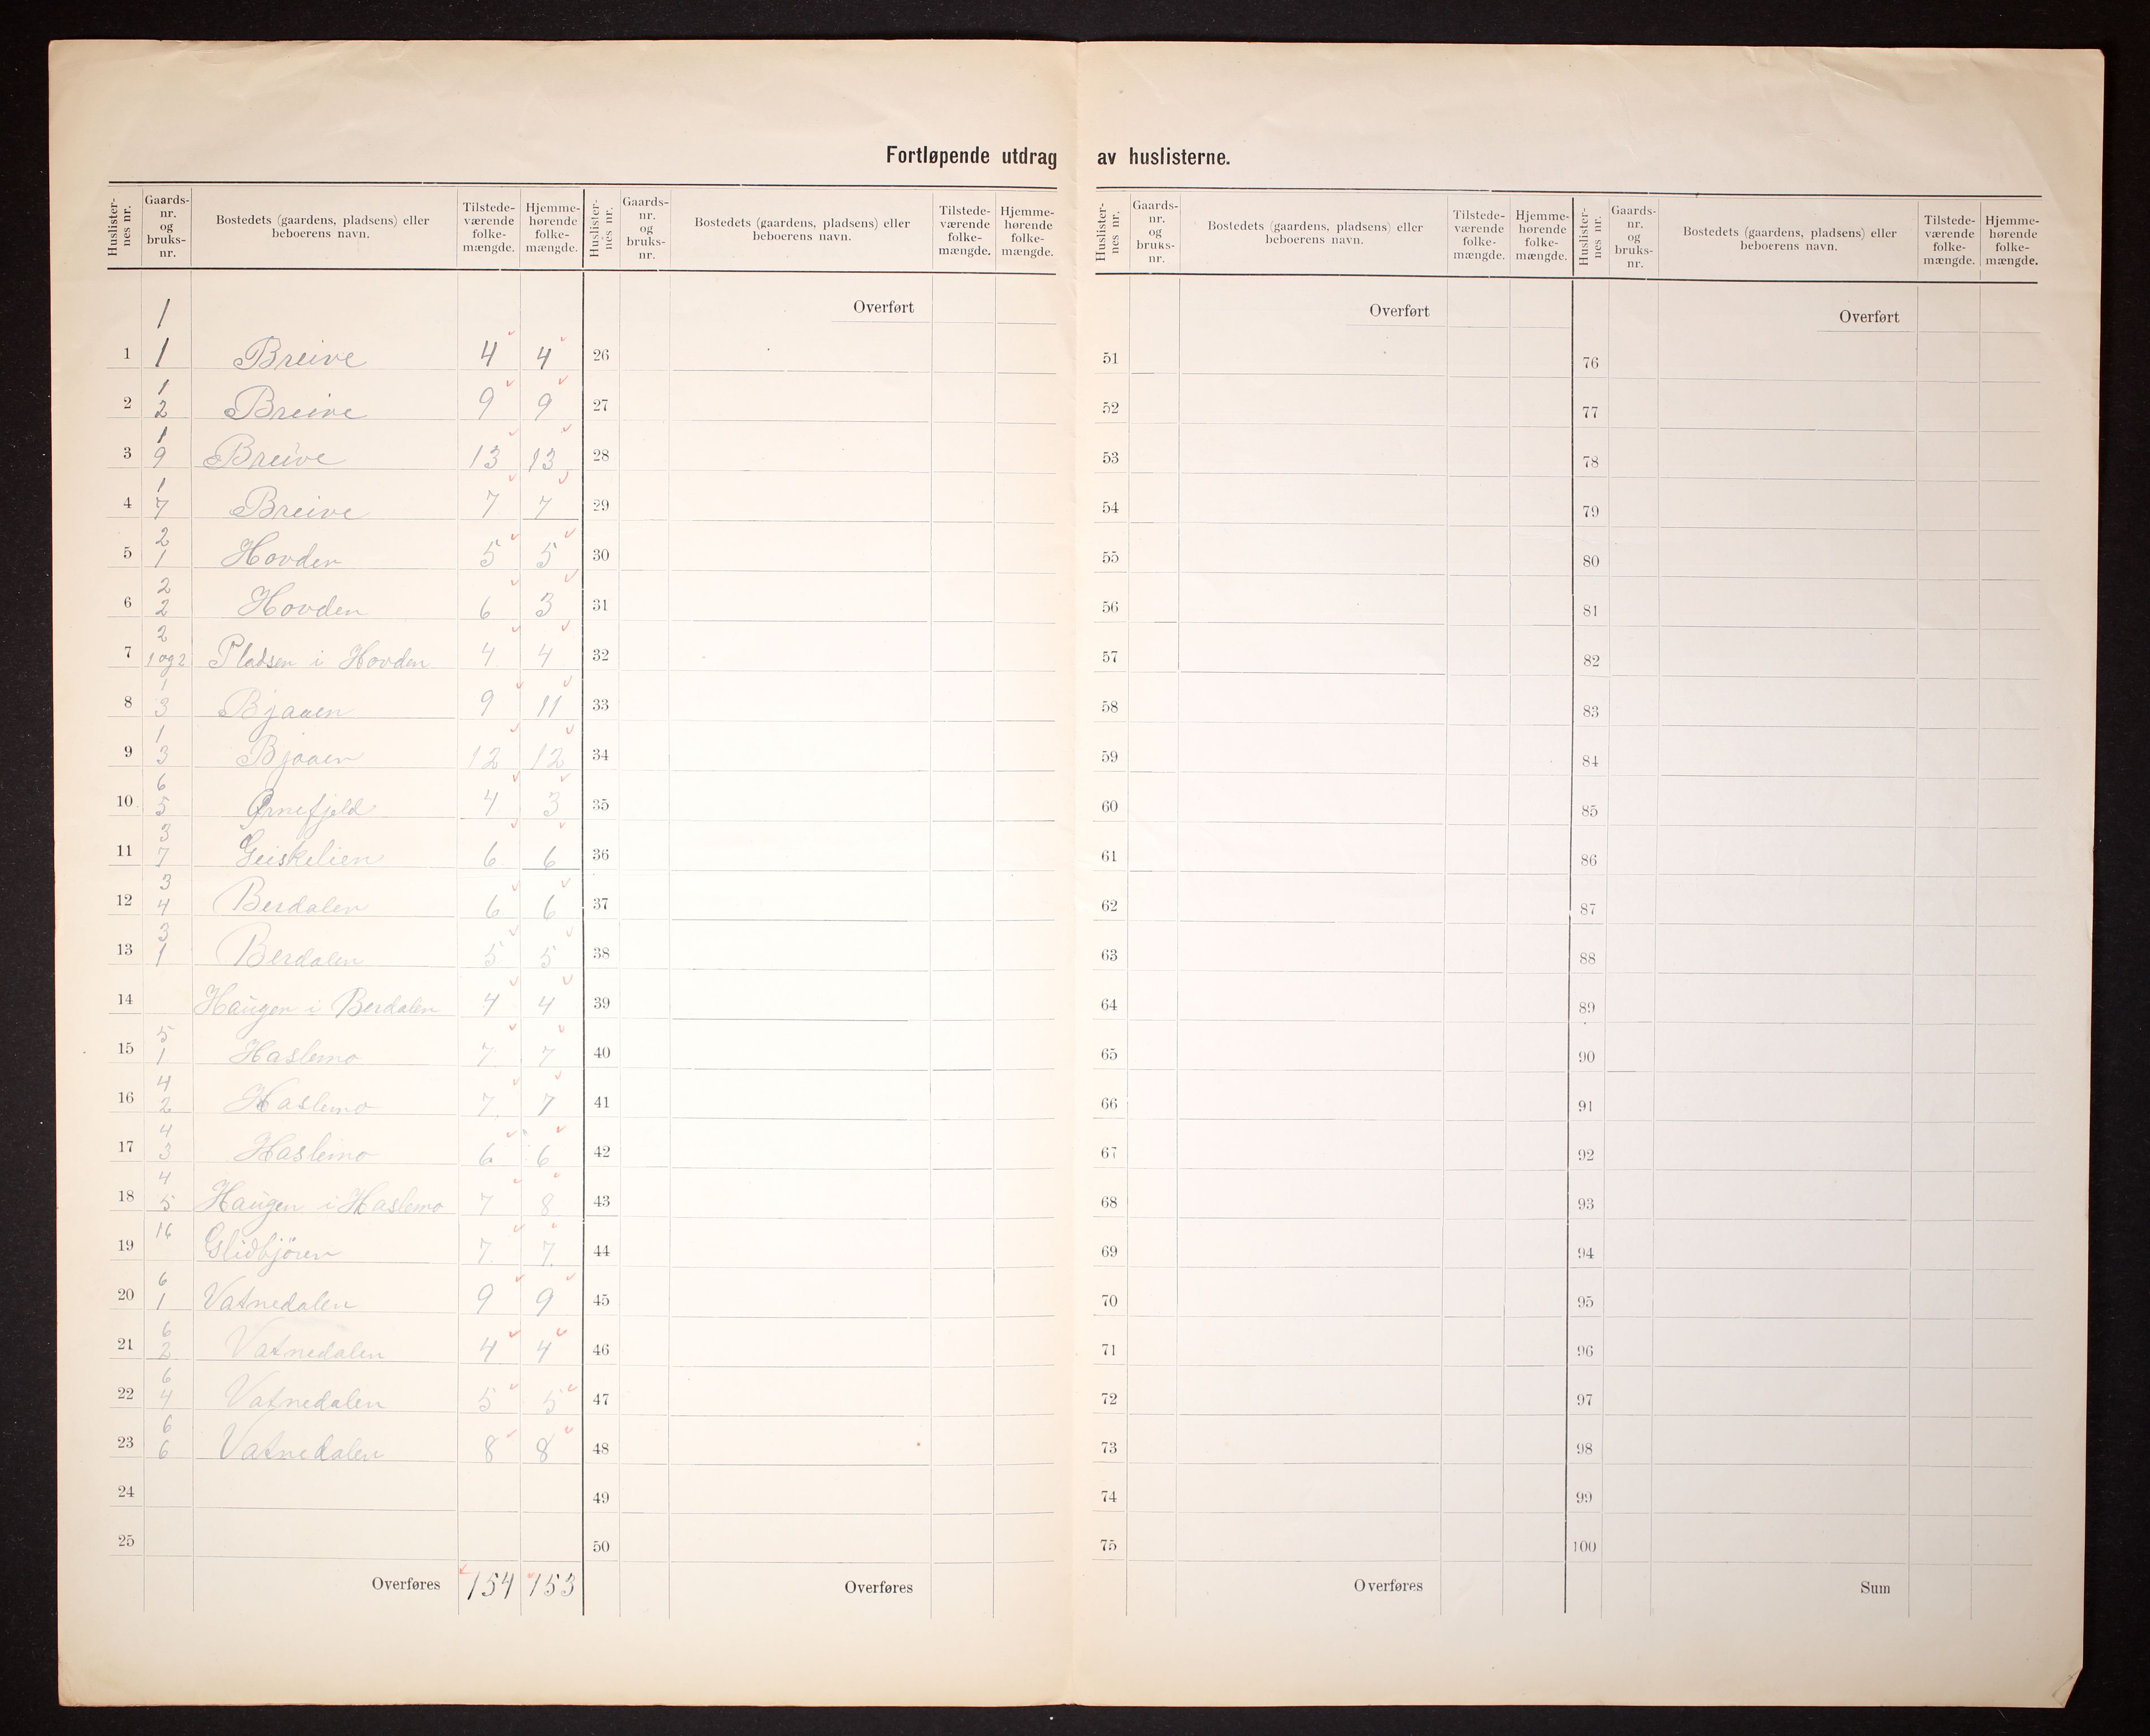 Fortløpende utdrag av huslisterne.
Huslister-nes nr. Gaards-nr. og bruks-nr. Bostedets (gaardens, pladsens) eller beboerens navn. Tilstede-værende folke-mængde. Hjemme-hørende folke-mængde.
1 1/1 Breive 4 4
2 1/2 Breive 9 9
3 1/9 Breive 13 13
4 1/7 Breive 7 7
5 2/1 Hovden 5 5
6 2/2 Hovden 6 3
7 2/1 og 2 Pladsen i Hovden 4 4
8 1/3 Bjaaen 9 11
9 1/3 Bjaaen 12 12
10 6/5 Ørnefjeld 4 3
11 3/7 Geiskelien 6 6
12 3/4 Berdalen 6 6
13 3/1 Berdalen 5 5
14 Haugen i Berdalen 4 4
15 5/1 Haslemo 7 7
16 4/2 Haslemo 7 7
17 4/3 Haslemo 6 6
18 4/5 Haugen i Haslemo 7 8
19 16 Glidbjören 7 7
20 6/1 Vatnedalen 9 9
21 6/2 Vatnedalen 4 4
22 6/4 Vatnedalen 5 5
23 6/6 Vatnedalen 8 8
24
25
Overføres 154 153
Huslister-nes nr. Gaards-nr. og bruks-nr. Bostedets (gaardens, pladsens) eller beboerens navn. Tilstede-værende folke-mængde. Hjemme-hørende folke-mængde.
Overført
26
27
28
29
30
31
32
33
34
35
36
37
38
39
40
41
42
43
44
45
46
47
48
49
50
Overføres
Huslister-nes nr. Gaards-nr. og bruks-nr. Bostedets (gaardens, pladsens) eller beboerens navn. Tilstede-værende folke-mængde. Hjemme-hørende folke-mængde.
Overført
51
52
53
54
55
56
57
58
59
60
61
62
63
64
65
66
67
68
69
70
71
72
73
74
75
Overføres
Huslister-nes nr. Gaards-nr. og bruks-nr. Bostedets (gaardens, pladsens) eller beboerens navn. Tilstede-værende folke-mængde. Hjemme-hørende folke-mængde.
Overført
76
77
78
79
80
81
82
83
84
85
86
87
88
89
90
91
92
93
94
95
96
97
98
99
100
Sum